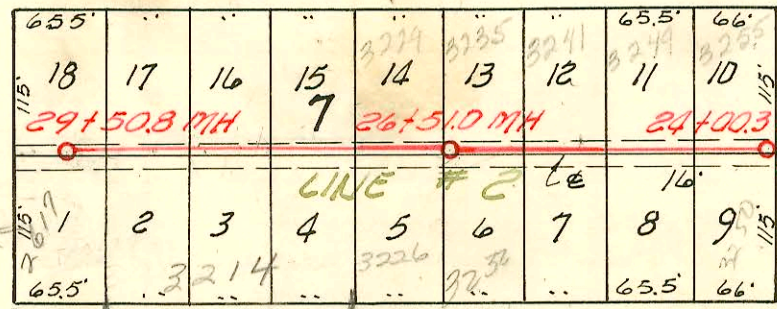 65.5' " " " " " " 65.5' 66'
3229 3235 3241 3249 3255
115' 18 17 16 15 14 13 12 11 10 115'
7
29+50.8 MH 26+51.0 MH 24+00.3
LINE # 2 16'
115' 1 2 3 4 5 6 7 8 9 115'
2617
3214 3226
65.5' " " " " " " 65.5' 66'